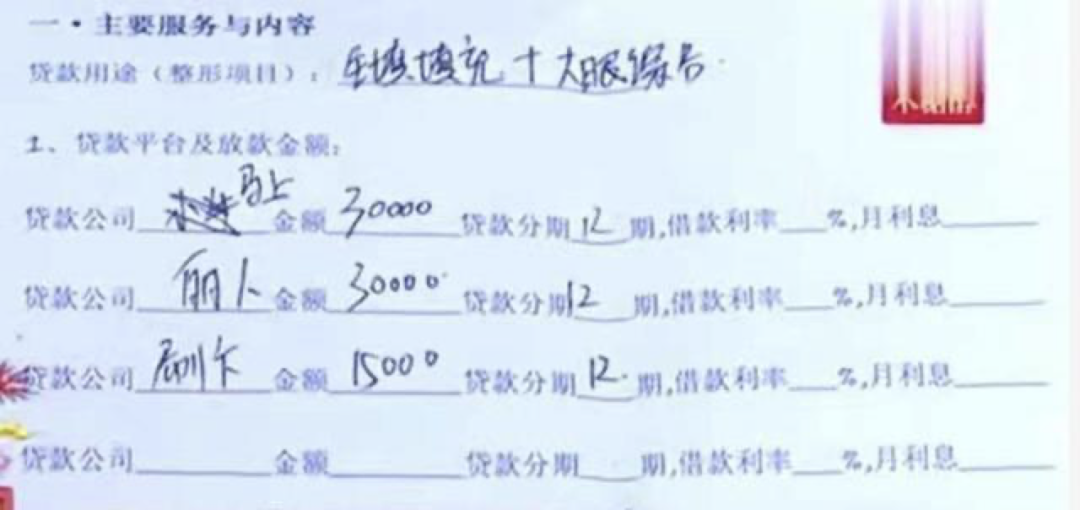 一·主要服务与内容
贷款用途（整形项目）：全填填充+大眼综合
1、贷款平台及放款金额：
贷款公司 马上 金额 30000 贷款分期 12 期,借款利率___%,月利息______
贷款公司 丽人 金额 30000 贷款分期 12 期,借款利率___%,月利息______
贷款公司 刷卡 金额 15000 贷款分期 12 期,借款利率___%,月利息______
贷款公司______金额______贷款分期___期,借款利率___%,月利息______